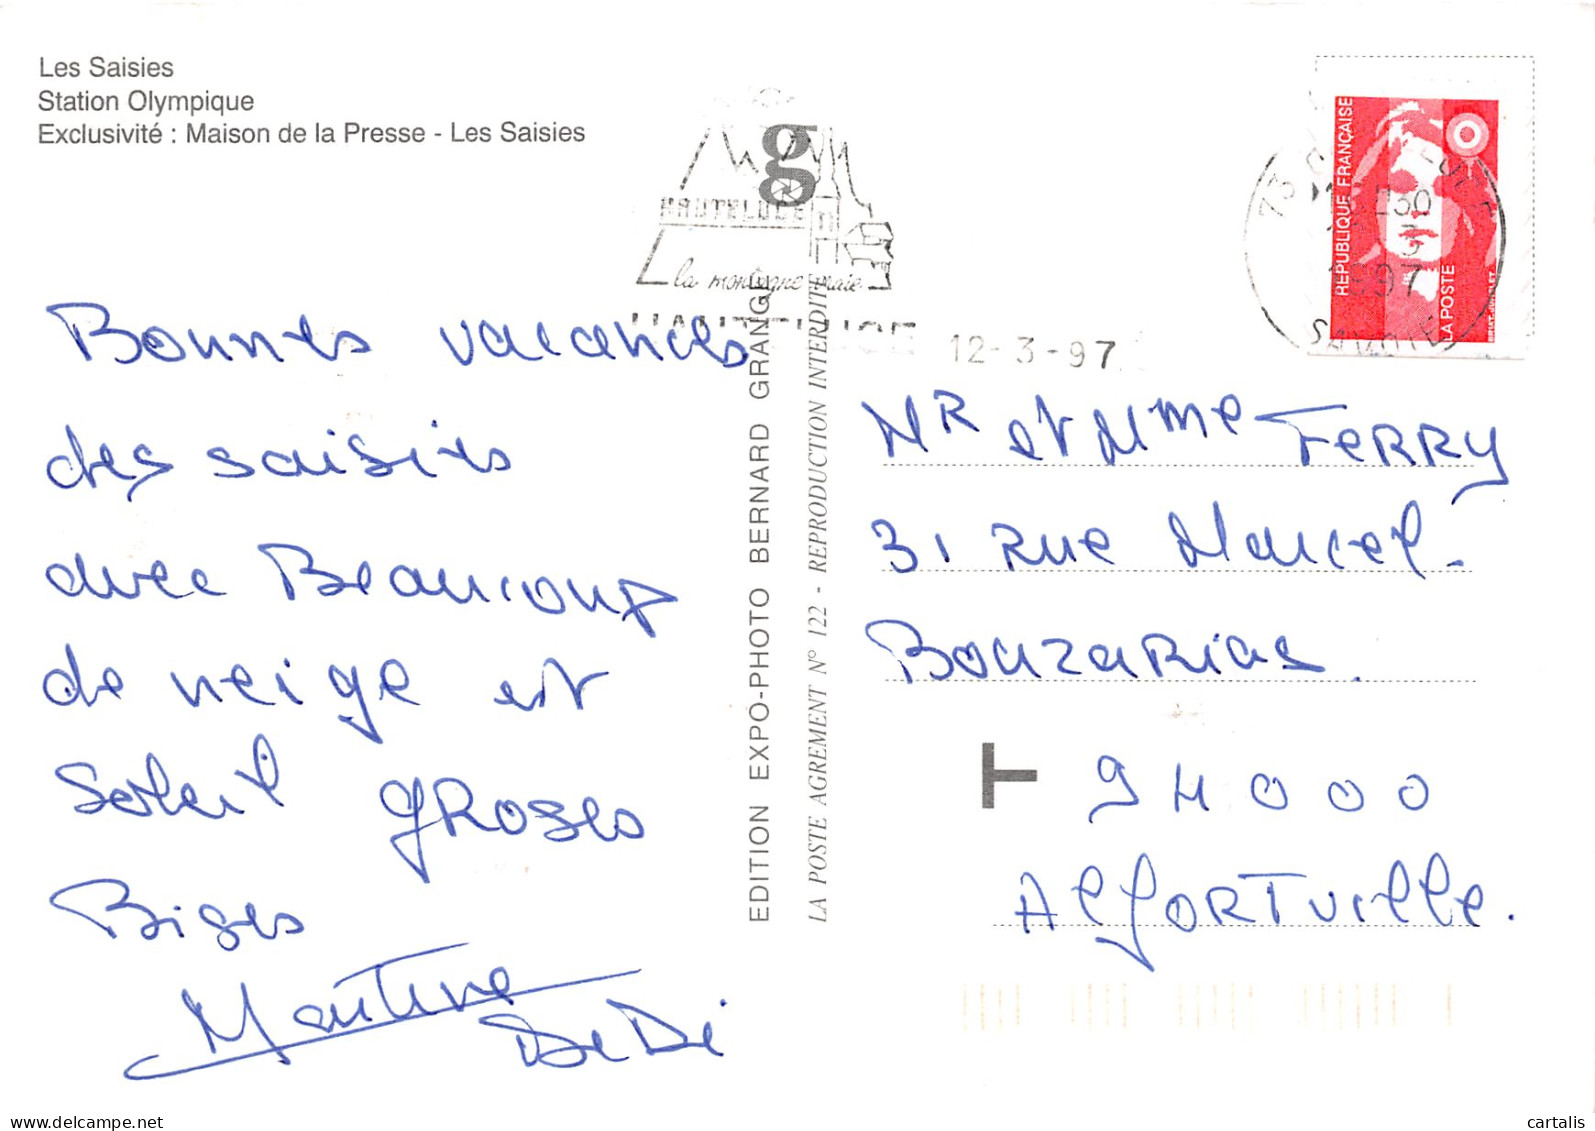 Les Saisies
Station Olympique
Exclusivité : Maison de la Presse - Les Saisies
g
HAUTELUCE
la montagne vraie
HAUTELUCE 12-3-97
73
1997
SAVOIE
REPUBLIQUE FRANÇAISE
LA POSTE
EDITION EXPO-PHOTO BERNARD GRANGE
LA POSTE AGREMENT N° 122 - REPRODUCTION INTERDITE
Bonnes vacances
des saisies
avec Beaucoup
de neige et
Soleil gROSES
Bises
Martine
DeDé
MR et Mme FeRRy
31 Rue Marcel-
BouzaRias.
T
94000
AlfORTville.
www.delcampe.net
cartalis